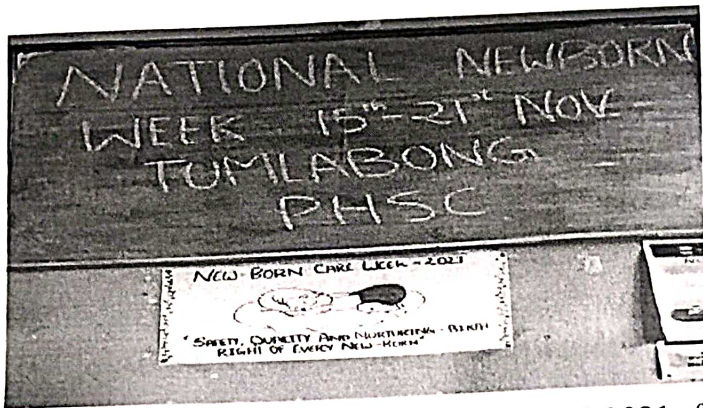 NATIONAL NEWBORN
WEEK 15th-21st NOV
TUMLABONG
PHSC
NEW-BORN CARE WEEK-2021
"SAFETY, QUALITY AND NURTURING-BIRTH
RIGHT OF EVERY NEW-BORN"